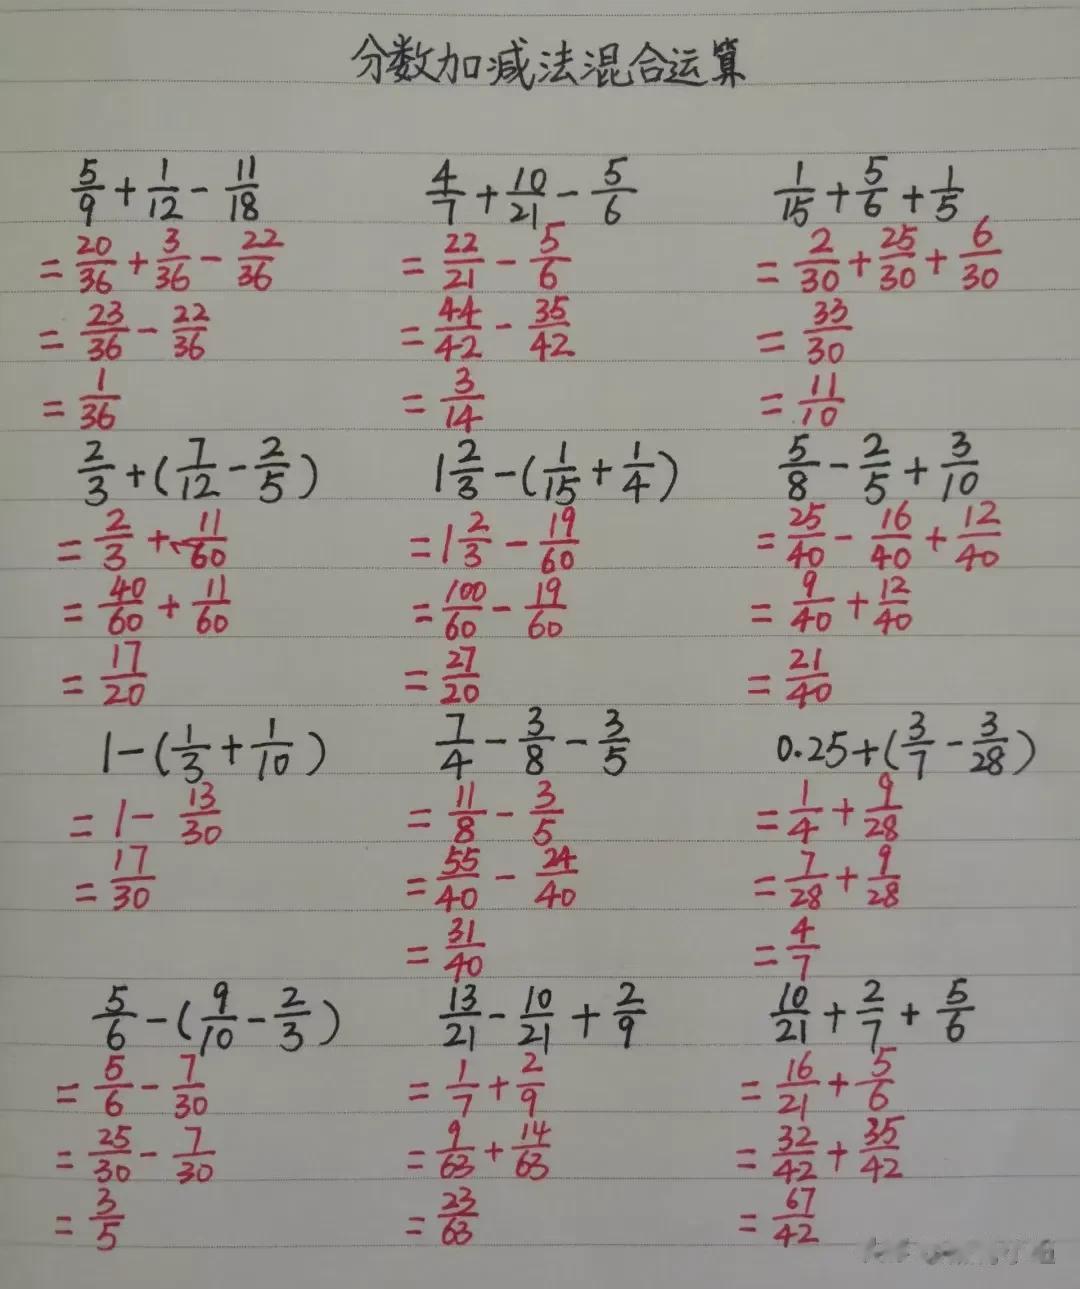 分数加减法混合运算
5/9 + 1/12 - 11/18
= 20/36 + 3/36 - 22/36
= 23/36 - 22/36
= 1/36
4/7 + 10/21 - 5/6
= 22/21 - 5/6
= 44/42 - 35/42
= 3/14
1/15 + 5/6 + 1/5
= 2/30 + 25/30 + 6/30
= 33/30
= 11/10
2/3 + (7/12 - 2/5)
= 2/3 + 11/60
= 40/60 + 11/60
= 17/20
1 2/3 - (1/15 + 1/4)
= 1 2/3 - 19/60
= 100/60 - 19/60
= 27/20
5/8 - 2/5 + 3/10
= 25/40 - 16/40 + 12/40
= 9/40 + 12/40
= 21/40
1 - (1/3 + 1/10)
= 1 - 13/30
= 17/30
7/4 - 3/8 - 3/5
= 11/8 - 3/5
= 55/40 - 24/40
= 31/40
0.25 + (3/7 - 3/28)
= 1/4 + 9/28
= 7/28 + 9/28
= 4/7
5/6 - (9/10 - 2/3)
= 5/6 - 7/30
= 25/30 - 7/30
= 3/5
13/21 - 10/21 + 2/9
= 1/7 + 2/9
= 9/63 + 14/63
= 23/63
10/21 + 2/7 + 5/6
= 16/21 + 5/6
= 32/42 + 35/42
= 67/42